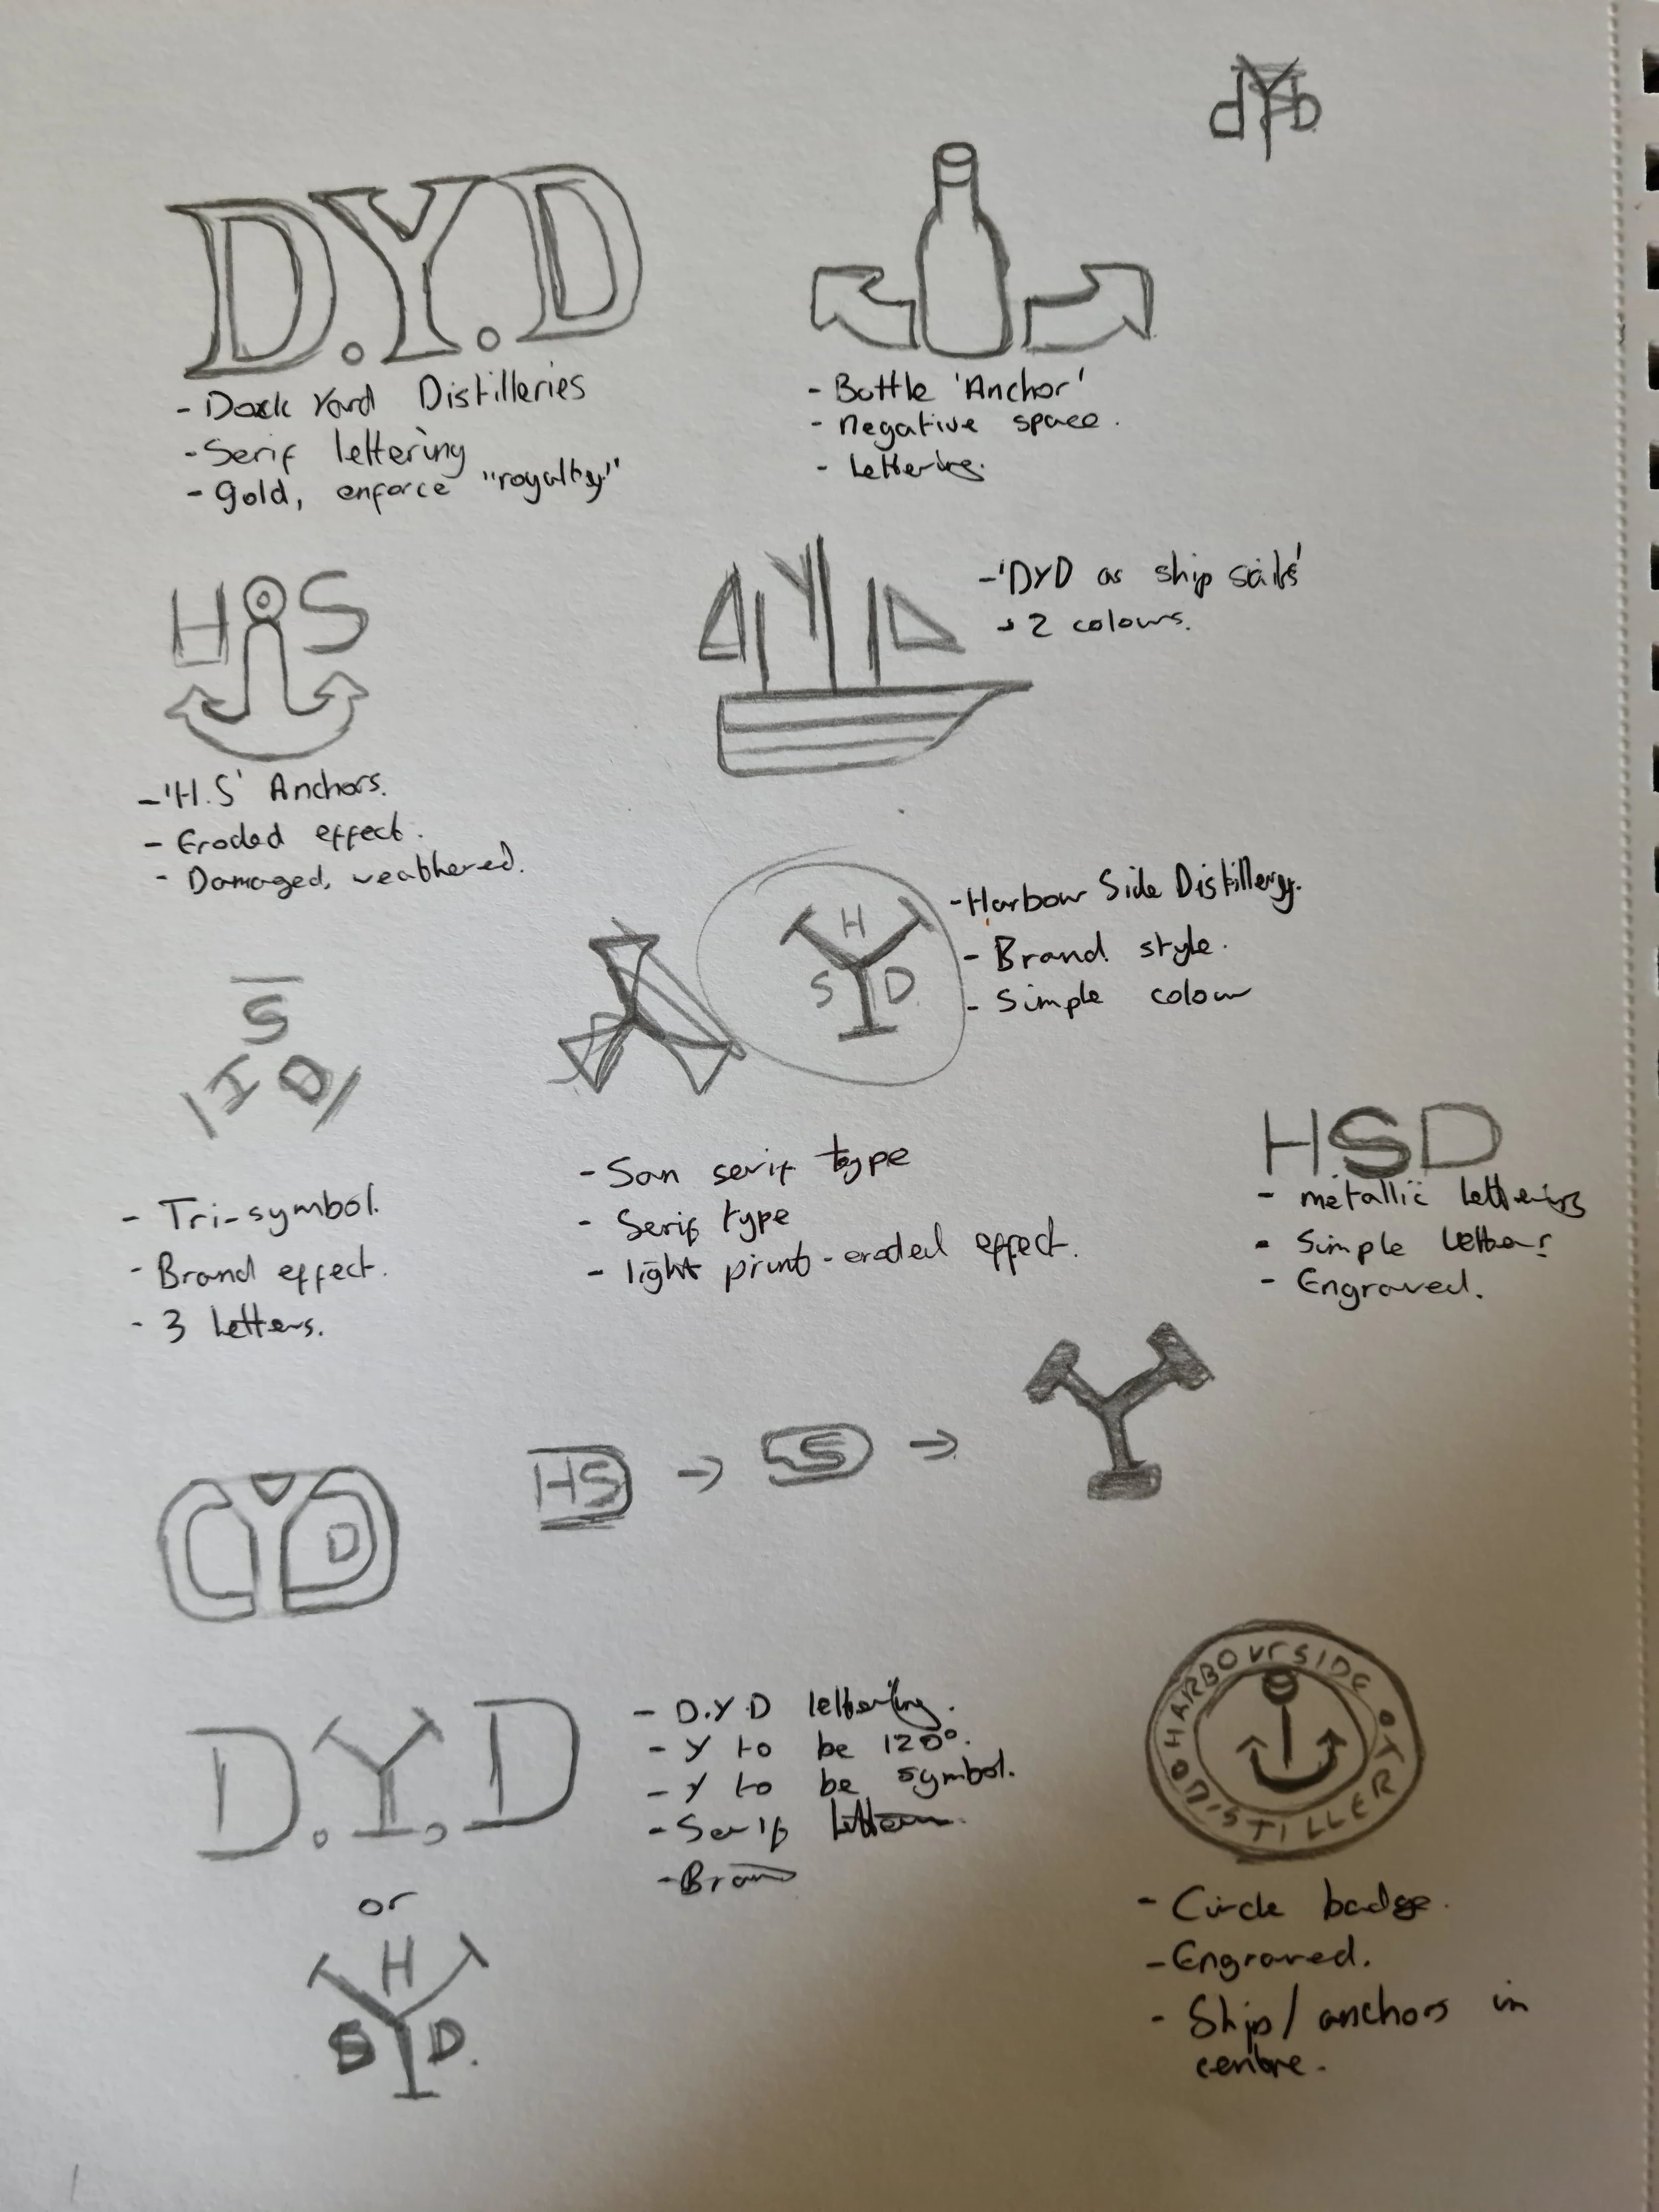 dYb
D.Y.D
- Dock Yard Distilleries
- Serif lettering
- Gold, enforce "royalty"
- Bottle 'Anchor'
- negative space.
- Lettering.
H S
- 'H.S' Anchors.
- Eroded effect.
- Damaged, weathered.
DYD
- 'DYD as ship sails'
2 colours.
H
S D
- Harbour Side Distillery.
- Brand style.
- Simple colour
S
H D
- Tri-symbol.
- Brand effect.
- 3 Letters.
- San serif type
- Serif type
- light print - eroded effect.
HSD
- metallic lettering
- Simple letters
- Engraved.
HS → S → Y
D
D.Y.D
- D.Y.D lettering.
- Y to be 120°.
- Y to be symbol.
- Serif
or
H
S D.
HARBOURSIDE
DISTILLERY
- Circle badge.
- Engraved.
- Ship/anchors in
centre.